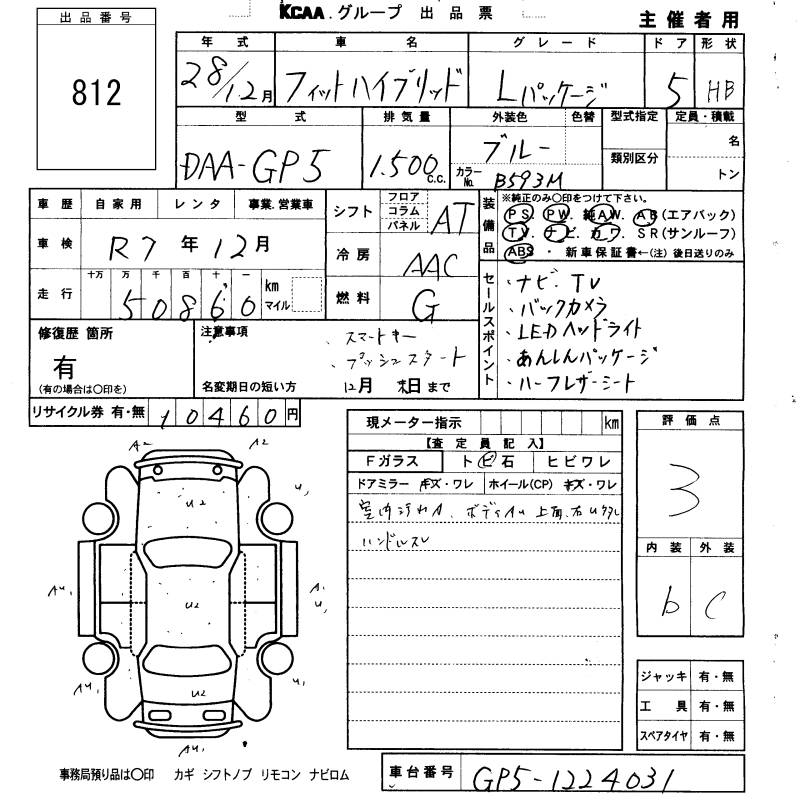 出品番号
812
KCAA.グループ 出品票
主催者用
年式 車名 グレード ドア 形状
28/12月 フィットハイブリッド Lパッケージ 5 HB
型式 排気量 外装色 色替 型式指定 定員・積載
DAA-GP5 1.500 c.c. ブルー 名
カラーNo. B593M 類別区分 トン
車歴 自家用 レンタ 事業.営業車
車検 R7年12月
走行 十万 万 千 百 十 一
50860 km マイル
シフト フロア コラム パネル AT
冷房 AAC
燃料 G
装備品 ※純正のみ○印をつけて下さい。
PS. PW. 純AW. AB(エアバック)
TV. ナビ. カワ. SR(サンルーフ)
ABS ・ 新車保証書←(注)後日送りのみ
セールスポイント
・ナビ、TV
・バックカメラ
・LEDヘッドライト
・あんしんパッケージ
・ハーフレザーシート
修復歴 箇所
有
(有の場合は○印を)
注意事項
・スマートキー
・プッシュスタート
名変期日の短い方 12月 末日まで
リサイクル券 有・無 10460円
現メーター指示 km
【査定員記入】
Fガラス ト ビ 石 ヒビワレ
ドアミラー キズ・ワレ ホイール(CP) キズ・ワレ
室内汚れA、ボディAU 上面、右Uクタレ
ハンドルスレ
評価点
3
内装 外装
b C
ジャッキ 有・無
工具 有・無
スペアタイヤ 有・無
A2 A2
U2 U,
AU, U2 A, U,
AU, U2 AU,
AU,
事務局預り品は○印 カギ シフトノブ リモコン ナビロム
車台番号 GP5-1224031